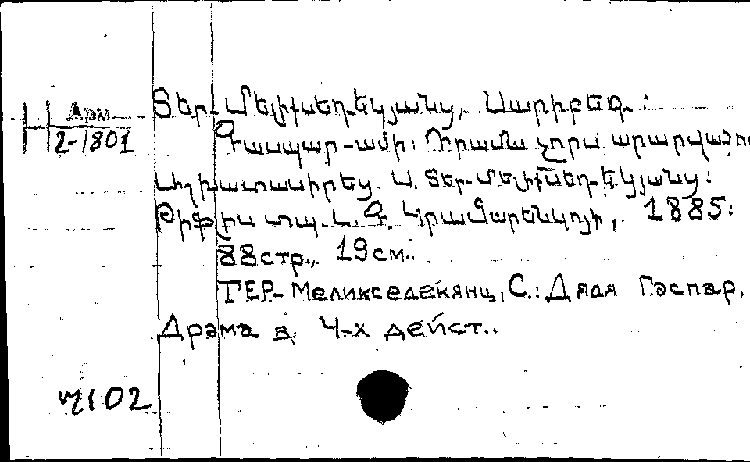 Арм
2-1801
Տեր-Մելիքսեդեկյանց, Սարիբեգ:
Գասպար-ամի: Դրամա չորս արարված
Աշխատասիրեց Ս. Տեր-Մելիքսեդեկյանց:
Թիֆլիս տպ. 1885:
88стр., 19см..
ТЕР-Меликседекянц, С.: Дядя Гаспар.
Драма в 4-х дейст..
102